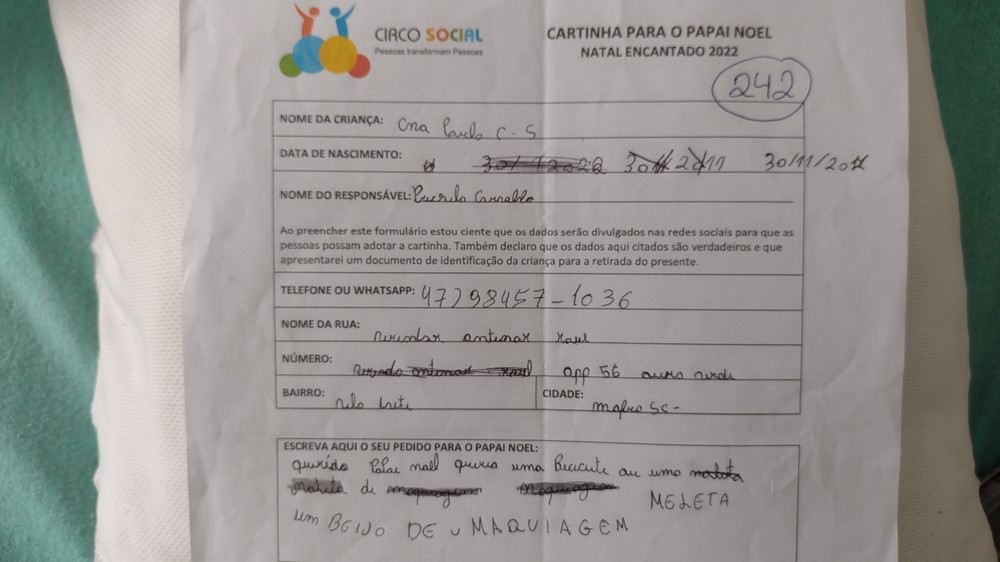 CIRCO SOCIAL
Pessoas transformam Pessoas
CARTINHA PARA O PAPAI NOEL
NATAL ENCANTADO 2022
242
NOME DA CRIANÇA: Ana Paula C. S
DATA DE NASCIMENTO: 30/11/2011
NOME DO RESPONSÁVEL:
Ao preencher este formulário estou ciente que os dados serão divulgados nas redes sociais para que as
pessoas possam adotar a cartinha. Também declaro que os dados aqui citados são verdadeiros e que
apresentarei um documento de identificação da criança para a retirada do presente.
TELEFONE OU WHATSAPP: 47)98457-1036
NOME DA RUA: antenor
NÚMERO: app 56
BAIRRO:
CIDADE: mafra SC-
ESCREVA AQUI O SEU PEDIDO PARA O PAPAI NOEL:
querido Papai noell queria uma ou uma
de MELETA
um BEIJO DE MAQUIAGEM